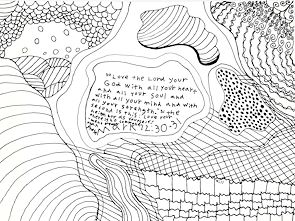 "Love the Lord your
God with all your heart
and all your soul and
with all your mind and with
all your strength." The
second is this: Love your
Mark 12:30-3